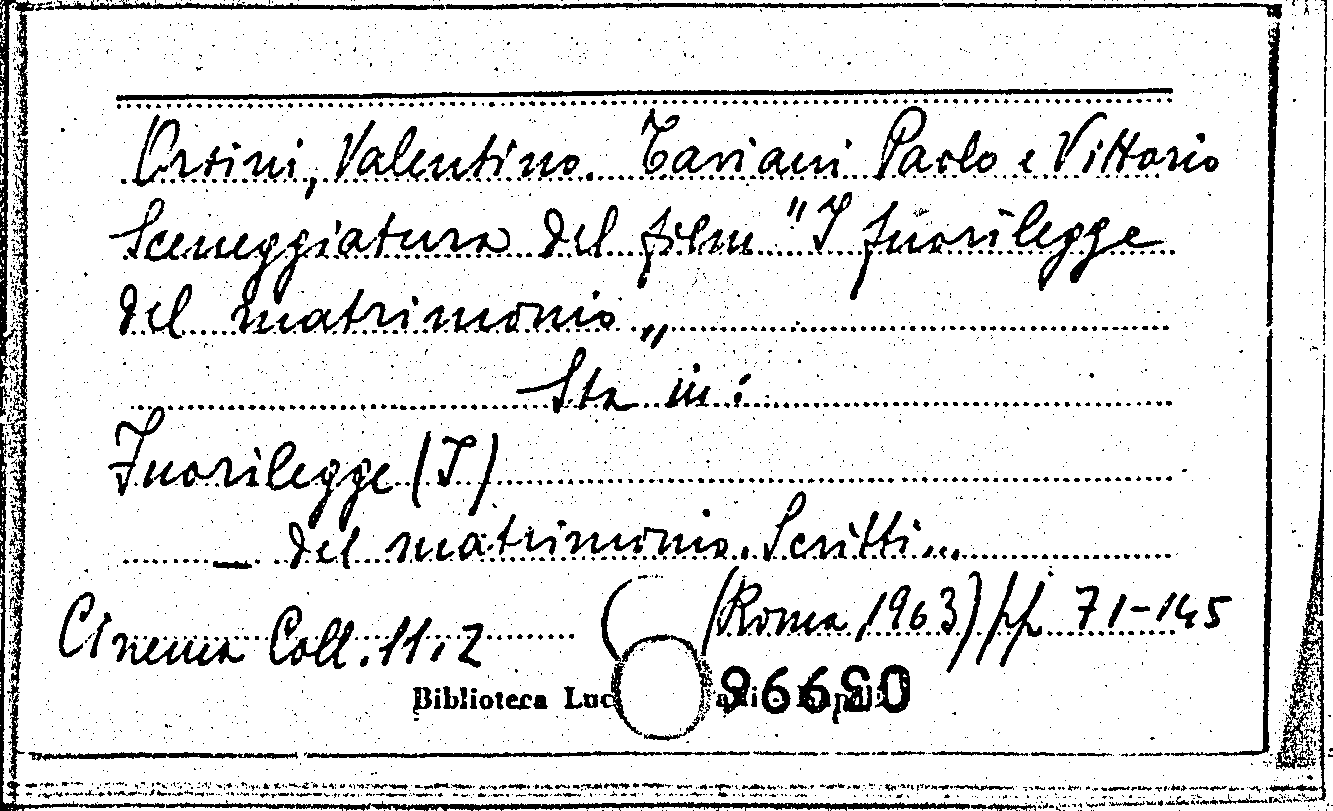 Orsini, Valentino. Taviani Paolo e Vittorio
Sceneggiatura del film "I fuorilegge
del matrimonio„
Sta in:
Fuorilegge (I)
— del matrimonio. Scritti...
(Roma, 1963) pp. 71-145
Cinema Coll. 11.2
Biblioteca Luc